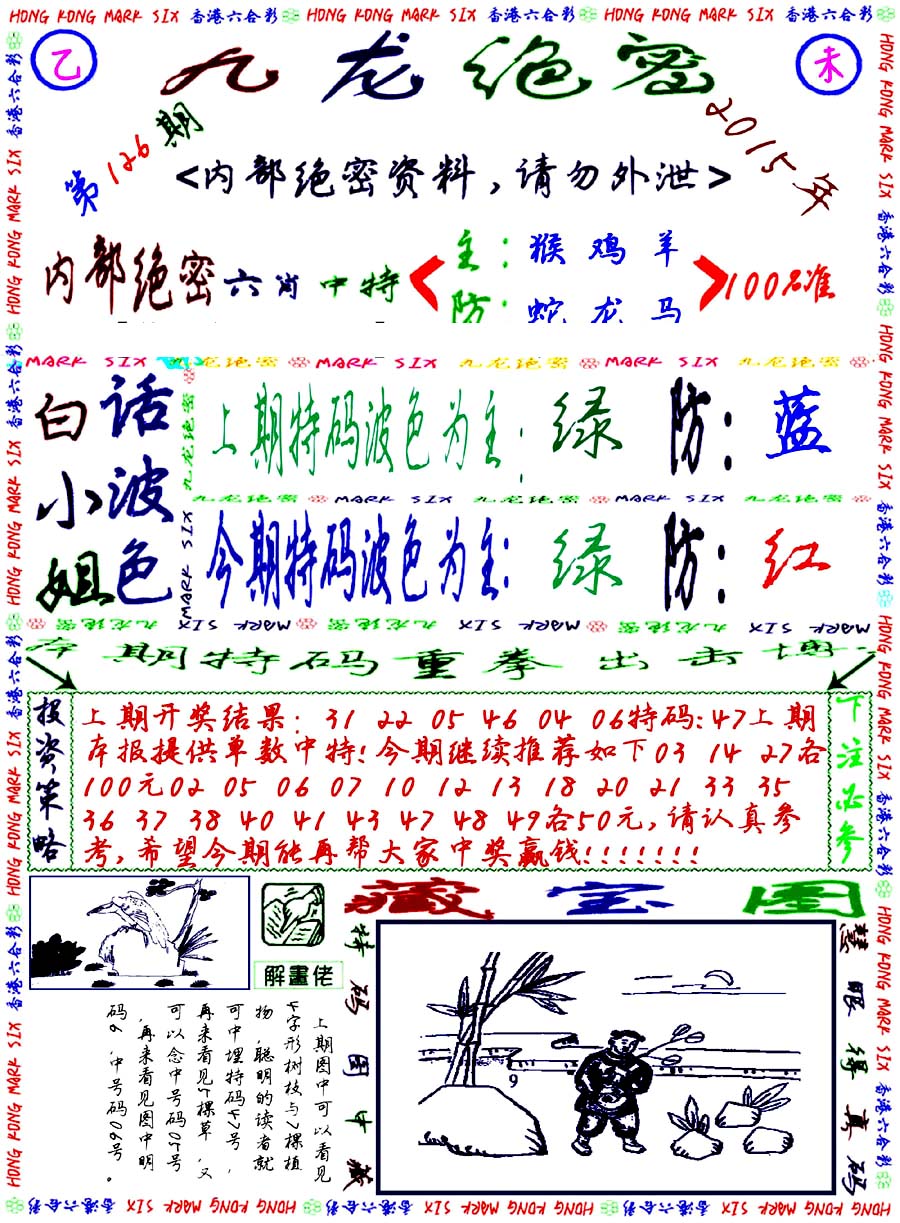 HONG KONG MARK SIX 香港六合彩 HONG KONG MARK SIX 香港六合彩 HONG KONG MARK SIX 香港六合彩
乙 九龙绝密 未
第126期 2015年
<内部绝密资料,请勿外泄>
内部绝密六肖中特
主:猴鸡羊
防:蛇龙马
100%准
MARK SIX 九龙绝密 MARK SIX 九龙绝密 MARK SIX 九龙绝密
白话小波姐色
上期特码波色为主:绿 防:蓝
九龙绝密 MARK SIX 九龙绝密 MARK SIX 九龙绝密
今期特码波色为主:绿 防:红
九龙绝密 MARK SIX 九龙绝密 MARK SIX 九龙绝密 MARK SIX
本期特码重拳出击博
投资策略
上期开奖结果:31 22 05 46 04 06特码:47上期
本报提供单数中特!今期继续推荐如下03 14 27各
100元02 05 06 07 10 12 13 18 20 21 33 35
36 37 38 40 41 43 47 48 49各50元,请认真参
考,希望今期能再帮大家中奖赢钱!!!!!!!
下注必参
解畫佬
藏宝图
上期图中可以看见
4字形树枝与7棵植
物,聪明的读者就
可中埋特码47号,
再来看见4棵草,又
可以念中号码04号
,再来看见图中明
码6,中号码06号。
特码图中藏
9
慧眼得真码
HONG KONG MARK SIX 香港六合彩 HONG KONG MARK SIX 香港六合彩 HONG KONG MARK SIX 香港六合彩